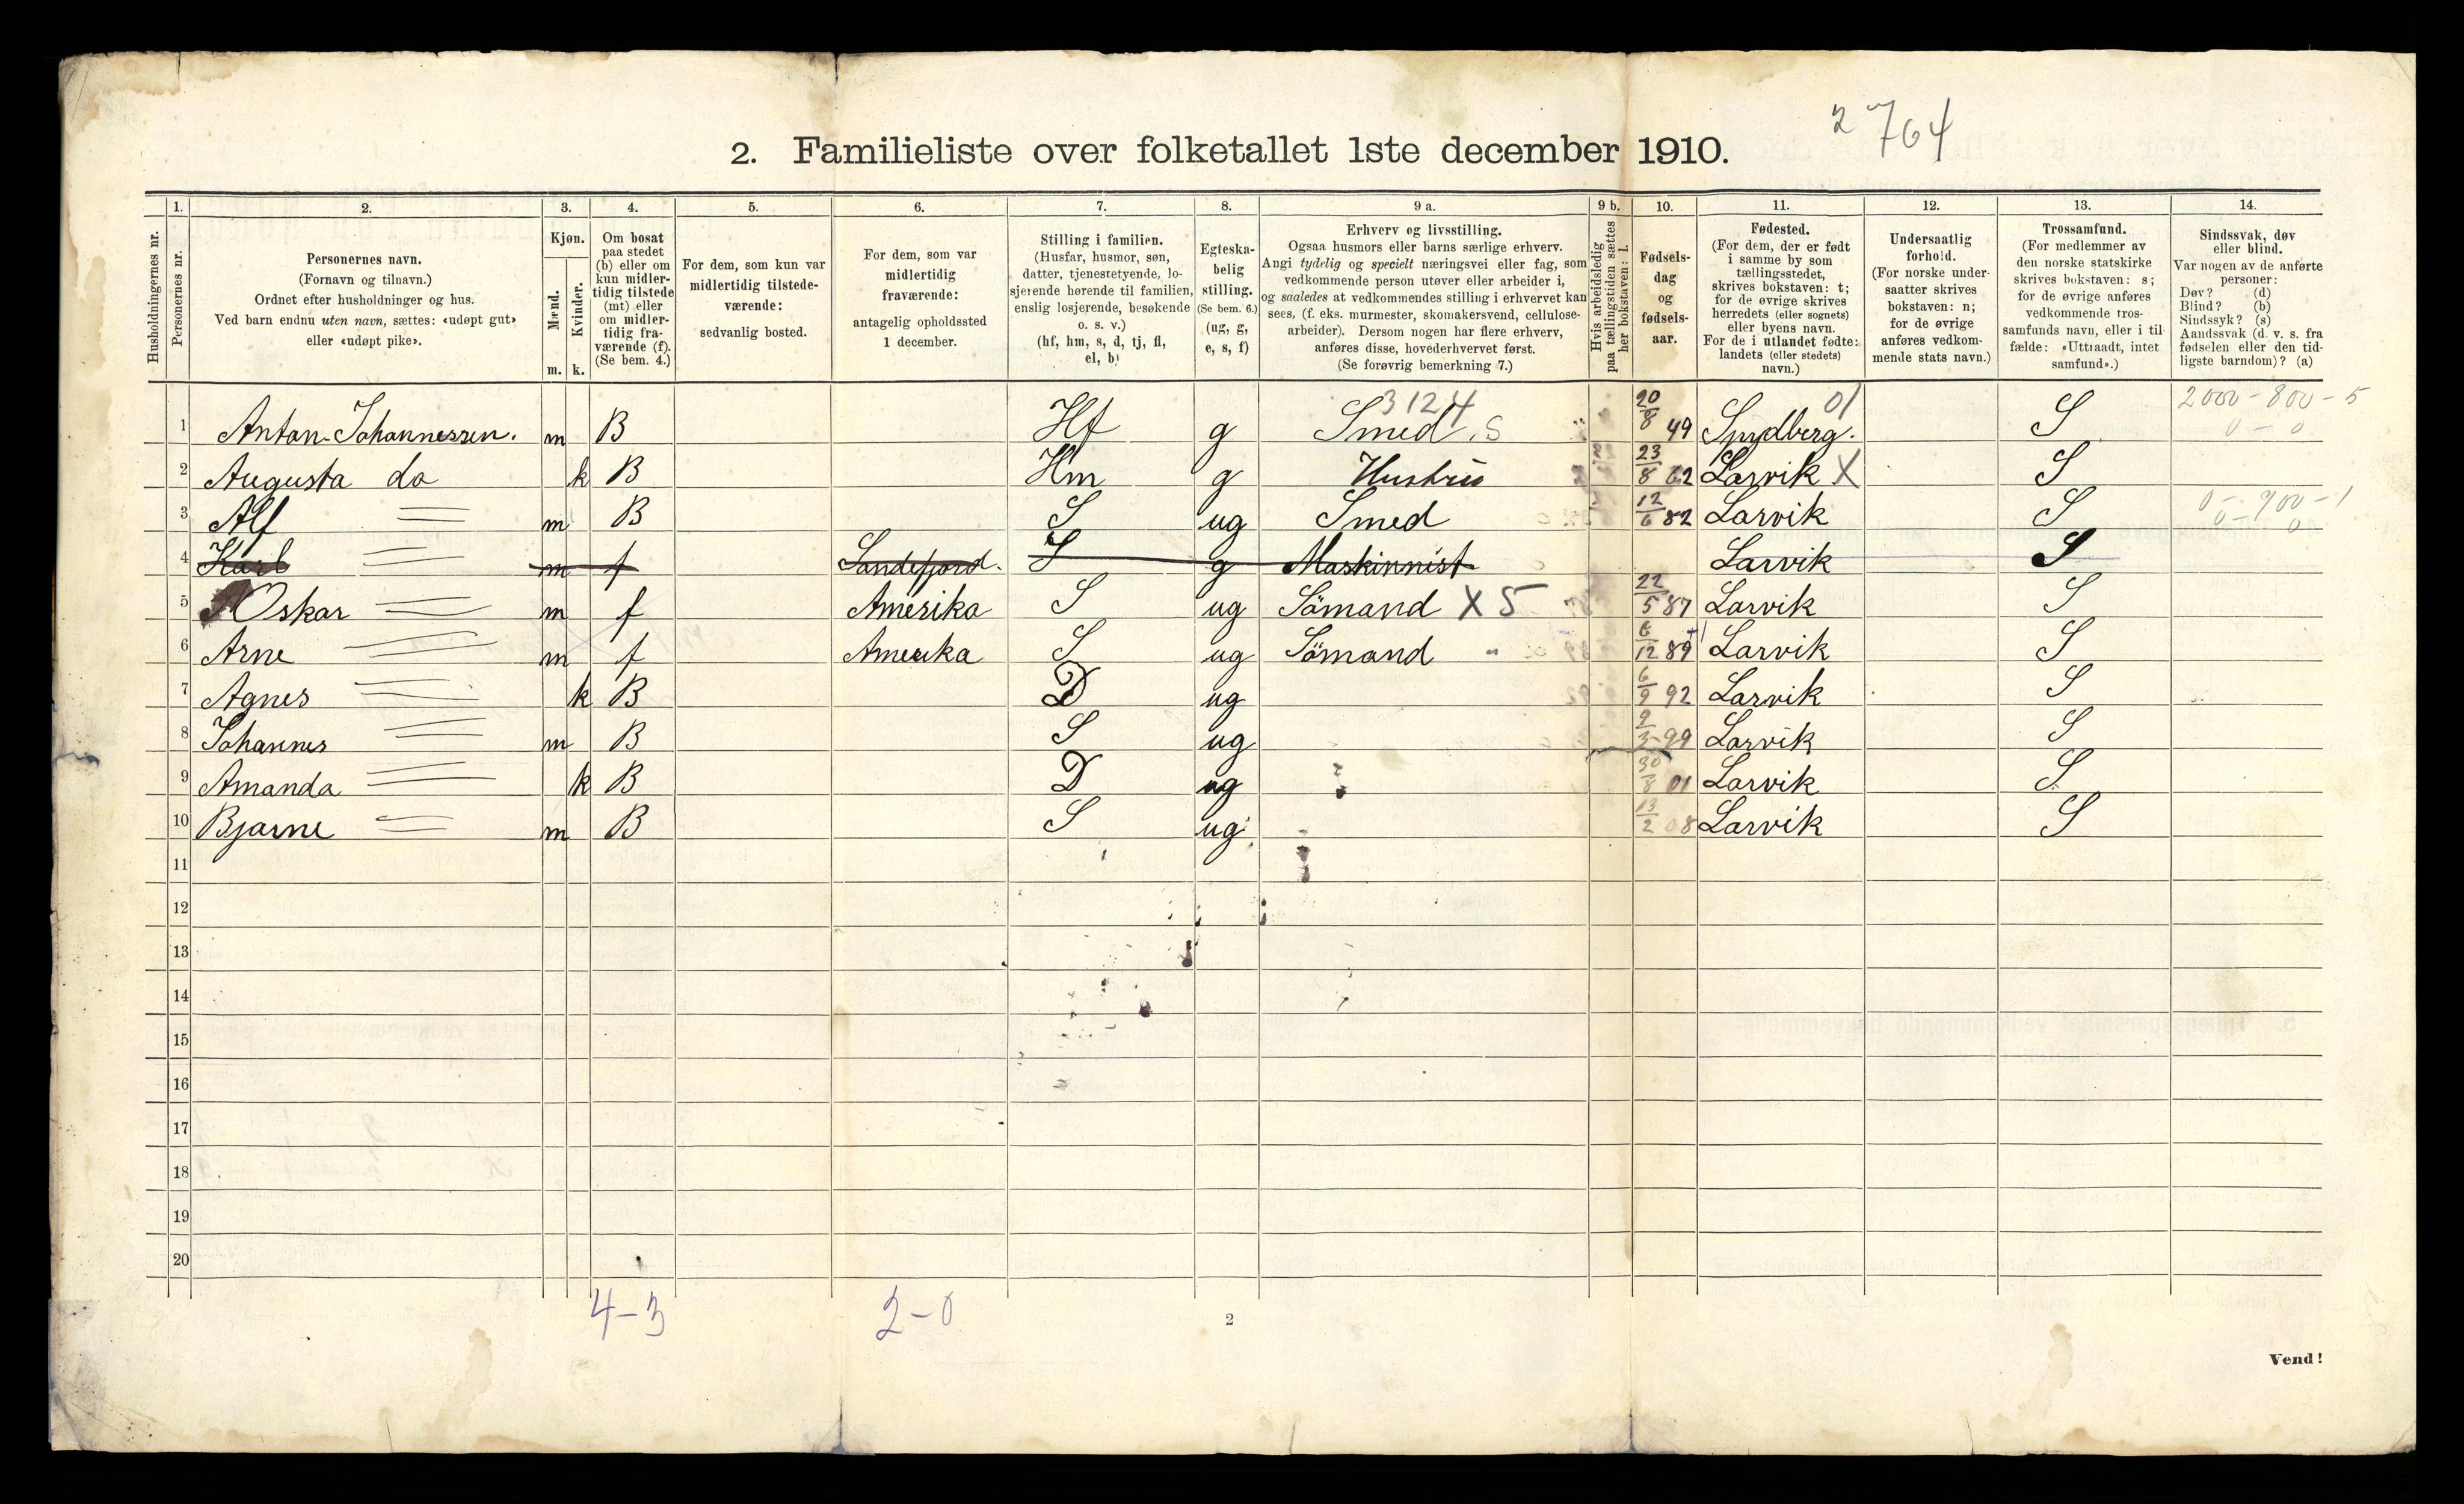 2 764
2. Familieliste over folketallet 1ste december 1910.
1. 2. 3. 4. 5. 6. 7. 8. 9 a. 9 b. 10. 11. 12. 13. 14.
Husholdningernes nr.
Personernes nr.
Personernes navn.
(Fornavn og tilnavn.)
Ordnet efter husholdninger og hus.
Ved barn endnu uten navn, sættes: «udøpt gut»
eller «udøpt pike».
Kjøn.
Mænd.
Kvinder.
m. k.
Om bosat
paa stedet
(b) eller om
kun midler-
tidig tilstede
(mt) eller
om midler-
tidig fra-
værende (f).
(Se bem. 4.)
For dem, som kun var
midlertidig tilstede-
værende:
sedvanlig bosted.
For dem, som var
midlertidig
fraværende:
antagelig opholdssted
1 december.
Stilling i familien.
(Husfar, husmor, søn,
datter, tjenestetyende, lo-
sjerende hørende til familien,
enslig losjerende, besøkende
o. s. v.)
(hf, hm, s, d, tj, fl,
el, b)
Egteska-
belig
stilling.
(Se bem. 6.)
(ug, g,
e, s, f)
Erhverv og livsstilling.
Ogsaa husmors eller barns særlige erhverv.
Angi tydelig og specielt næringsvei eller fag, som
vedkommende person utøver eller arbeider i,
og saaledes at vedkommendes stilling i erhvervet kan
sees, (f. eks. murmester, skomakersvend, cellulose-
arbeider). Dersom nogen har flere erhverv,
anføres disse, hovederhvervet først.
(Se forøvrig bemerkning 7.)
Hvis arbeidsledig
paa tællingstiden sættes
her bokstaven: l.
Fødsels-
dag
og
fødsels-
aar.
Fødested.
(For dem, der er født
i samme by som
tællingsstedet,
skrives bokstaven: t;
for de øvrige skrives
herredets (eller sognets)
eller byens navn.
For de i utlandet fødte:
landets (eller stedets)
navn.)
Undersaatlig
forhold.
(For norske under-
saatter skrives
bokstaven: n;
for de øvrige
anføres vedkom-
mende stats navn.)
Trossamfund.
(For medlemmer av
den norske statskirke
skrives bokstaven: s;
for de øvrige anføres
vedkommende tros-
samfunds navn, eller i til-
fælde: «Uttraadt, intet
samfund».)
Sindssvak, døv
eller blind.
Var nogen av de anførte
personer:
Døv? (d)
Blind? (b)
Sindssyk? (s)
Aandssvak (d. v. s. fra
fødselen eller den tid-
ligste barndom)? (a)
3124 01 2000 - 800 - 5
1 Anton Johannessen. m B Hf g Smed. S 20/8 49 Spydberg. S 0 - 0
2 Augusta do k B Hm g Hustru 23/8 62 Larvik X S
3 Alf = m B S ug Smed 12/6 82 Larvik S 0 - 900 - 1
0 - 0
4 Karl = m f Sandefjord. S g Maskinnist Larvik S
5 Oskar = m f Amerika S ug Sömand X 5 22/5 87 Larvik S
6 Arne = m f Amerika S ug Sömand " 6/12 89 Larvik S
7 Agnes = k B D ug 6/9 92 Larvik S
8 Johannes = m B S ug 2/3 99 Larvik S
9 Amanda = k B D ug 30/8 01 Larvik S
10 Bjarne = m B S ug 13/2 08 Larvik S
11
12
13
14
15
16
17
18
19
20
4-3 2-0
2
Vend!